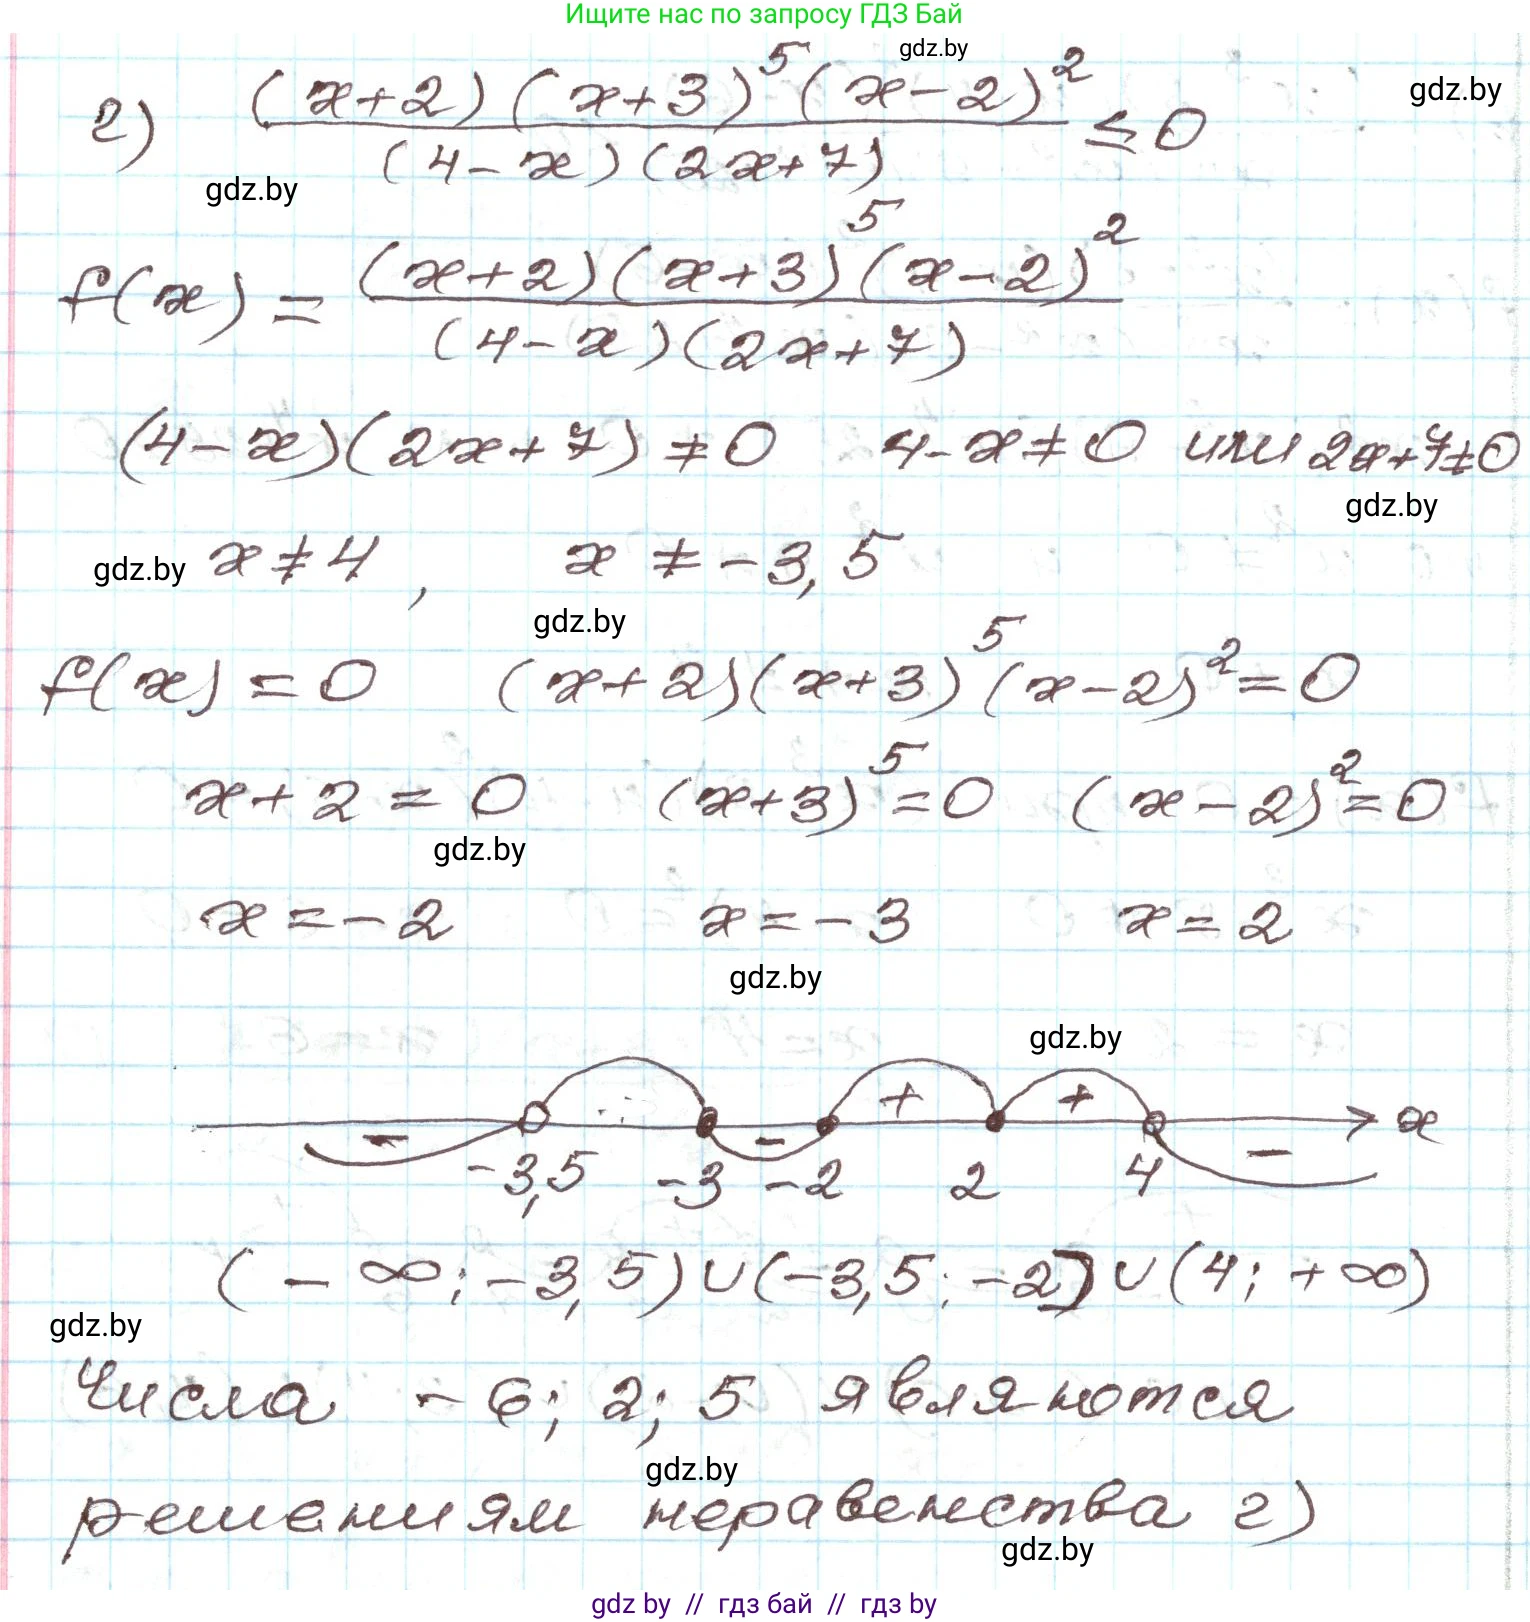 Ищите нас по запросу ГДЗ Бай
gdz.by
gdz.by
г) (x+2)(x+3)^5(x-2)^2 / (4-x)(2x+7) ≤ 0
gdz.by
f(x) = (x+2)(x+3)^5(x-2)^2 / (4-x)(2x+7)
(4-x)(2x+7) ≠ 0 4-x ≠ 0 или 2x+7≠0
gdz.by
gdz.by x ≠ 4, x ≠ -3,5
gdz.by
f(x) = 0 (x+2)(x+3)^5(x-2)^2 = 0
x+2 = 0 (x+3)^5 = 0 (x-2)^2 = 0
gdz.by
x = -2 x = -3 x = 2
gdz.by
gdz.by
- - + + - x
-3,5 -3 -2 2 4
(-∞; -3,5) ∪ (-3,5; -2] ∪ (4; +∞)
gdz.by
Числа -6; 2; 5 являются
gdz.by
решениям неравенства г)
gdz.by
gdz by // гдз бай // гдз by